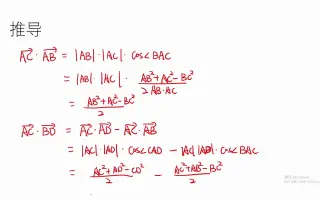 推导
AC·AB = |AB|·|AC|·cos∠BAC
= |AB|·|AC|·(AB²+AC²-BC²)/(2AB·AC)
= (AB²+AC²-BC²)/2
AC·BD = AC·AD - AC·AB
= |AC|·|AD|·cos∠CAD - |AC|·|AB|·cos∠BAC
= (AC²+AD²-CD²)/2 - (AC²+AB²-BC²)/2